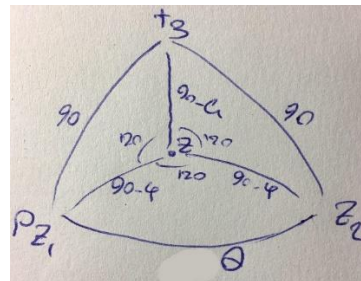 +З
90
90-φ
90
120
Z
120
120
90-φ
90-φ
PZ₁
Z₂
θ